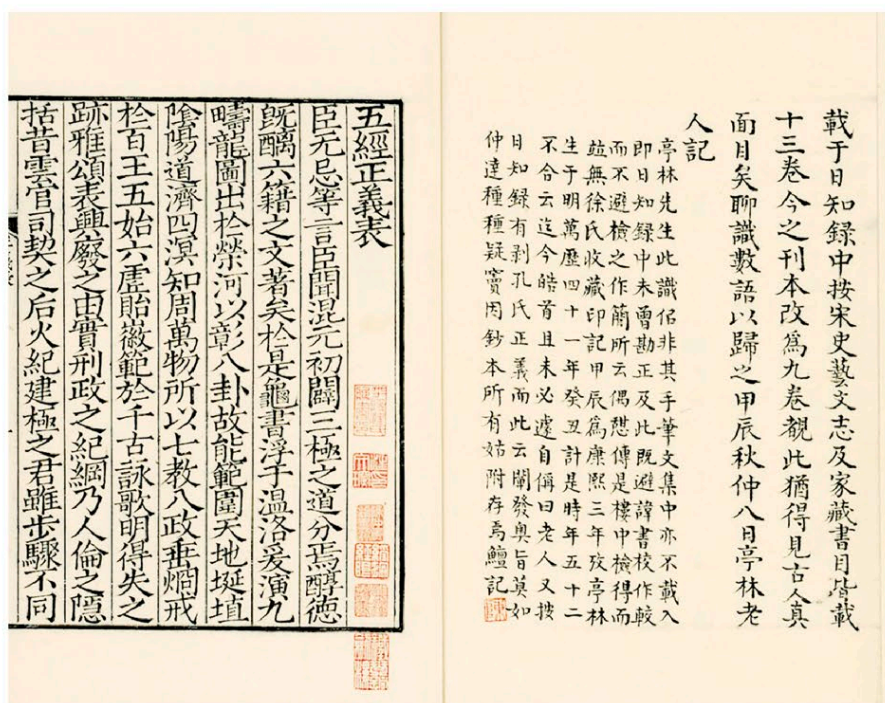 載于日知録中按宋史藝文志及家藏書目皆載
十三卷今之刊本改爲九卷觀此猶得見古人真
面目矣聊識數語以歸之甲辰秋仲八日亭林老
人記
亭林先生此識佀非其手筆文集中亦不載入
即日知録中未曾勘正及此既避諱書校作較
而不避檢之作簡所云偶憇傳是樓中檢得而
竝無徐氏收藏印記甲辰爲康熙三年攷亭林
生于明萬歷四十一年癸丑計是時年五十二
不合云迄今皓首且未必遽自偁曰老人又按
日知録有剥孔氏正義而此云闡發奥旨莫如
仲達種種疑竇因鈔本所有姑附存焉鱣記
五經正義表
臣无忌等言臣聞混元初闢三極之道分焉醇德
旣醨六籍之文著矣於是龜書浮于温洛爰演九
疇龍圖出於榮河以彰八卦故能範圍天地埏埴
陰陽道濟四溟知周萬物所以七教八政垂烱戒
於百王五始六虛貽徽範於千古詠歌明得失之
跡雅頌表興廢之由實刑政之紀綱乃人倫之隱
括昔雲官司契之后火紀建極之君雖步驟不同